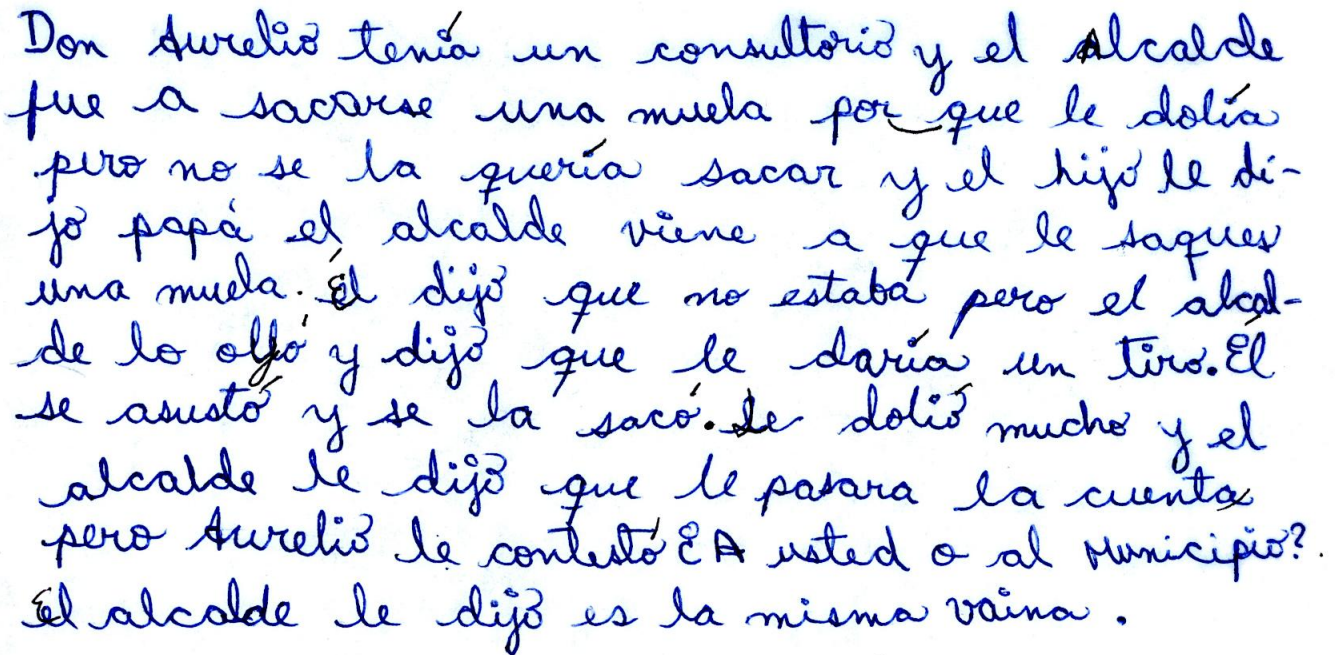 Don Aurelio tenía un consultorio y el Alcalde
fue a sacarse una muela por que le dolía
pero no se la quería sacar y el hijo le di-
jo papá el alcalde viene a que le saques
una muela. Él dijo que no estaba pero el alcal-
de lo olló y dijo que le daría un tiro. Él
se asustó y se la sacó. Le dolió mucho y el
alcalde le dijo que le pasara la cuenta
pero Aurelio le contestó ¿A usted o al Municipio?
El alcalde le dijo es la misma vaina.